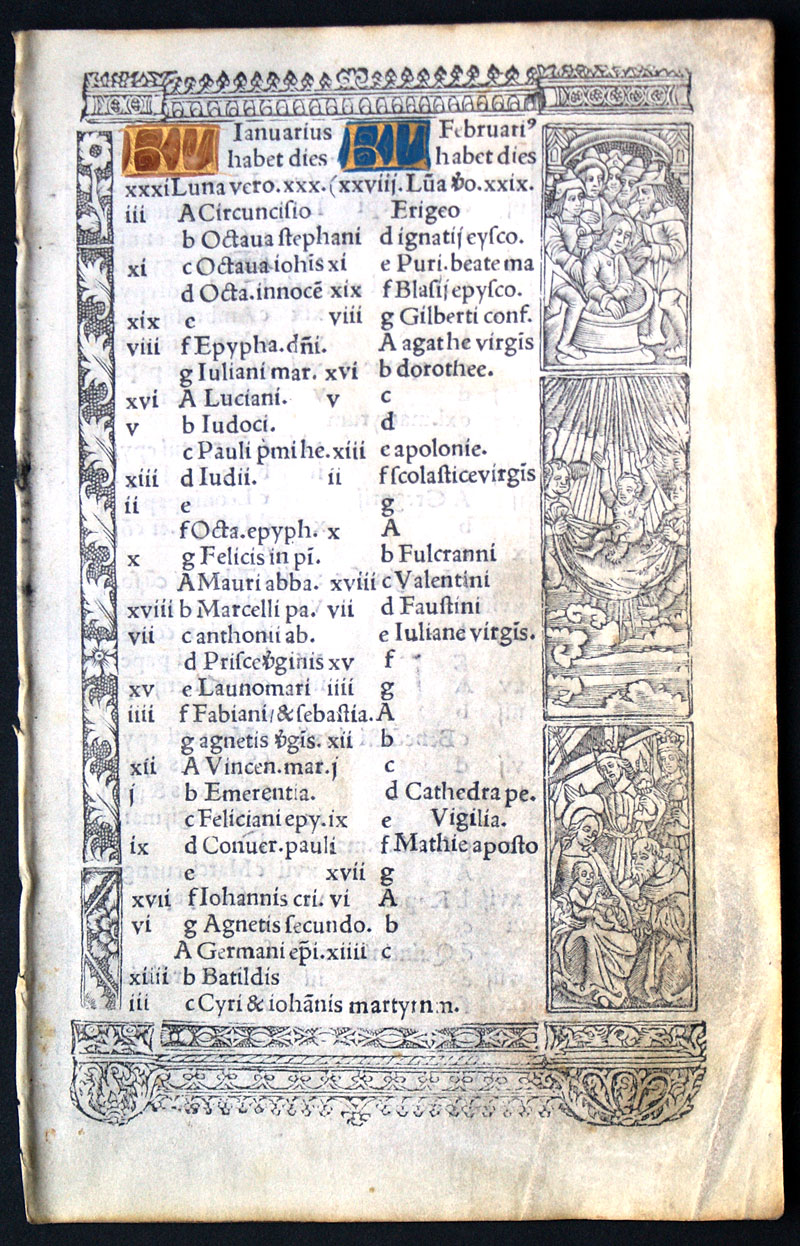 KL Ianuarius KL Februari⁹
habet dies habet dies
xxxi Luna vero.xxx. (xxviij. Lūa v̊o.xxix.
iii A Circuncisio Erigeo
b Octaua stephani d ignatij eysco.
xi c Octaua ioħis xi e Puri.beate ma
d Octa.innocē xix f Blasij epysco.
xix e viii g Gilberti conf.
viii f Epypha.dñi. A agathe virgīs
g Iuliani mar. xvi b dorothee.
xvi A Luciani. v c
v b Iudoci. d
c Pauli pmi he.xiii e apolonie.
xiii d Iudii. ii f scolastice virgīs
ii e g
f Octa.epyph. x A
x g Felicis in pī. b Fulcranni
A Mauri abba. xviii c Valentini
xviii b Marcelli pa. vii d Faustini
vii c anthonii ab. e Iuliane virgīs.
d Prisce v̊ginis xv f
xv e Launomari iiii g
iiii f Fabiani/ & sebastia. A
g agnetis v̊gīs. xii b
xii A Vincen.mar. j c
j b Emerentia. d Cathedra pe.
c Feliciani epy. ix e Vigilia.
ix d Conuer.pauli f Mathie aposto
e xvii g
xvii f Iohannis cri. vi A
vi g Agnetis secundo. b
A Germani ep̄i. xiiii c
xiiii b Batildis
iii c Cyri & iohānis martyrn.n.